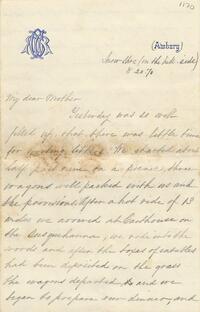 1170
(Asbury)
Snow Shoe (on the hill-side)
8 20 70
My dear Mother
Yesterday was so well
filled up, that there was little time
for writing letters. We started about
half past nine on a picnic, three
wagons well packed with us and
the provisions. After a hot ride of 13
miles we arrived at Carthouse on
the Susquehanna, we rode into the
woods and after the boxes of eatables
had been deposited on the grass
the wagons departed, and we
began to prepare our dinner, and